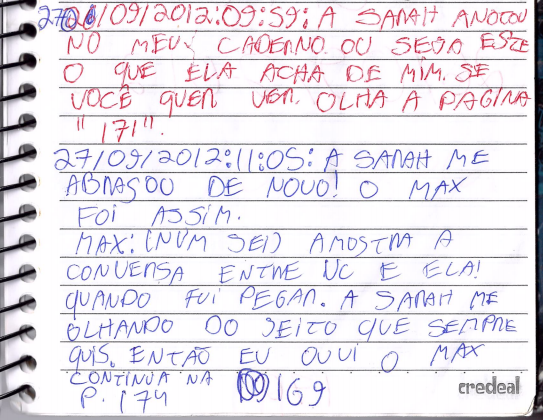 27/09/2012:09:59: A SARAH ANOTOU
NO MEU CADERNO OU SEJA ESTE
O QUE ELA ACHA DE MIM. SE
VOCÊ QUER VER. OLHA A PAGINA
"171".
27/09/2012:11:05: A SARAH ME
ABRASOU DE NOVO! O MAX
FOI ASSIM.
MAX: (NUM SEI) AMOSTRA A
CONVERSA ENTRE VC E ELA!
QUANDO FUI PEGAR. A SARAH ME
OLHANDO DO JEITO QUE SEMPRE
QUIS. ENTÃO EU OUVI O MAX
CONTINUA NA
P. 174
169
credeal